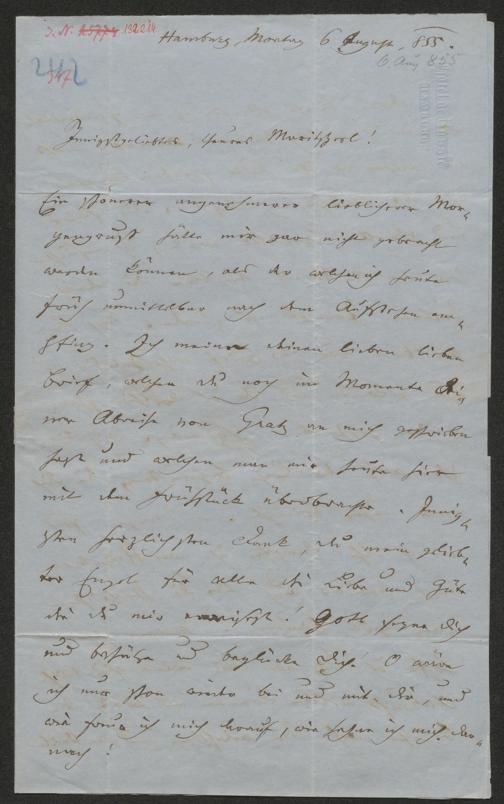 J. N. 132214
Hamburg, Montag 6 August, 855.
6. Aug 855
Innigstgeliebtes, theures Moritzerl!
Ein schönerer angenehmerer lieblicherer Mor-
gengruß hätte mir gar nicht gebracht
werden können, als der welchen ich heute
früh unmittelbar nach dem Aufstehen em-
pfing. Ich meine deinen lieben lieben
Brief, welchen du noch im Momente dei-
ner Abreise von Gratz an mich geschrieben
hast und welchen man mir heute hier
mit dem Frühstück überbrachte. Innig-
sten herzlichsten Dank, du mein gelieb-
ter Engel für alle die Liebe und Güte
die du mir erweisest! Gott segne dich
und beschütze und beglücke dich! O wäre
ich nur schon wieder bei und mit dir, und
wie freue ich mich darauf, wie sehne ich mich dar-
nach!